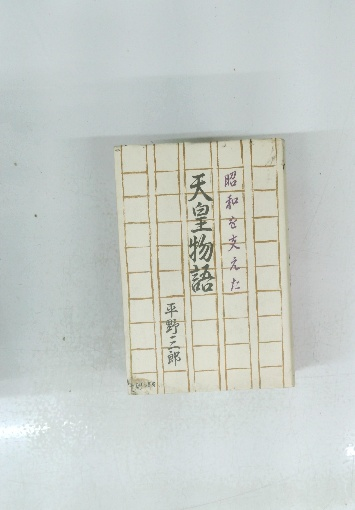 昭和を支えた
天皇物語
平野三郎